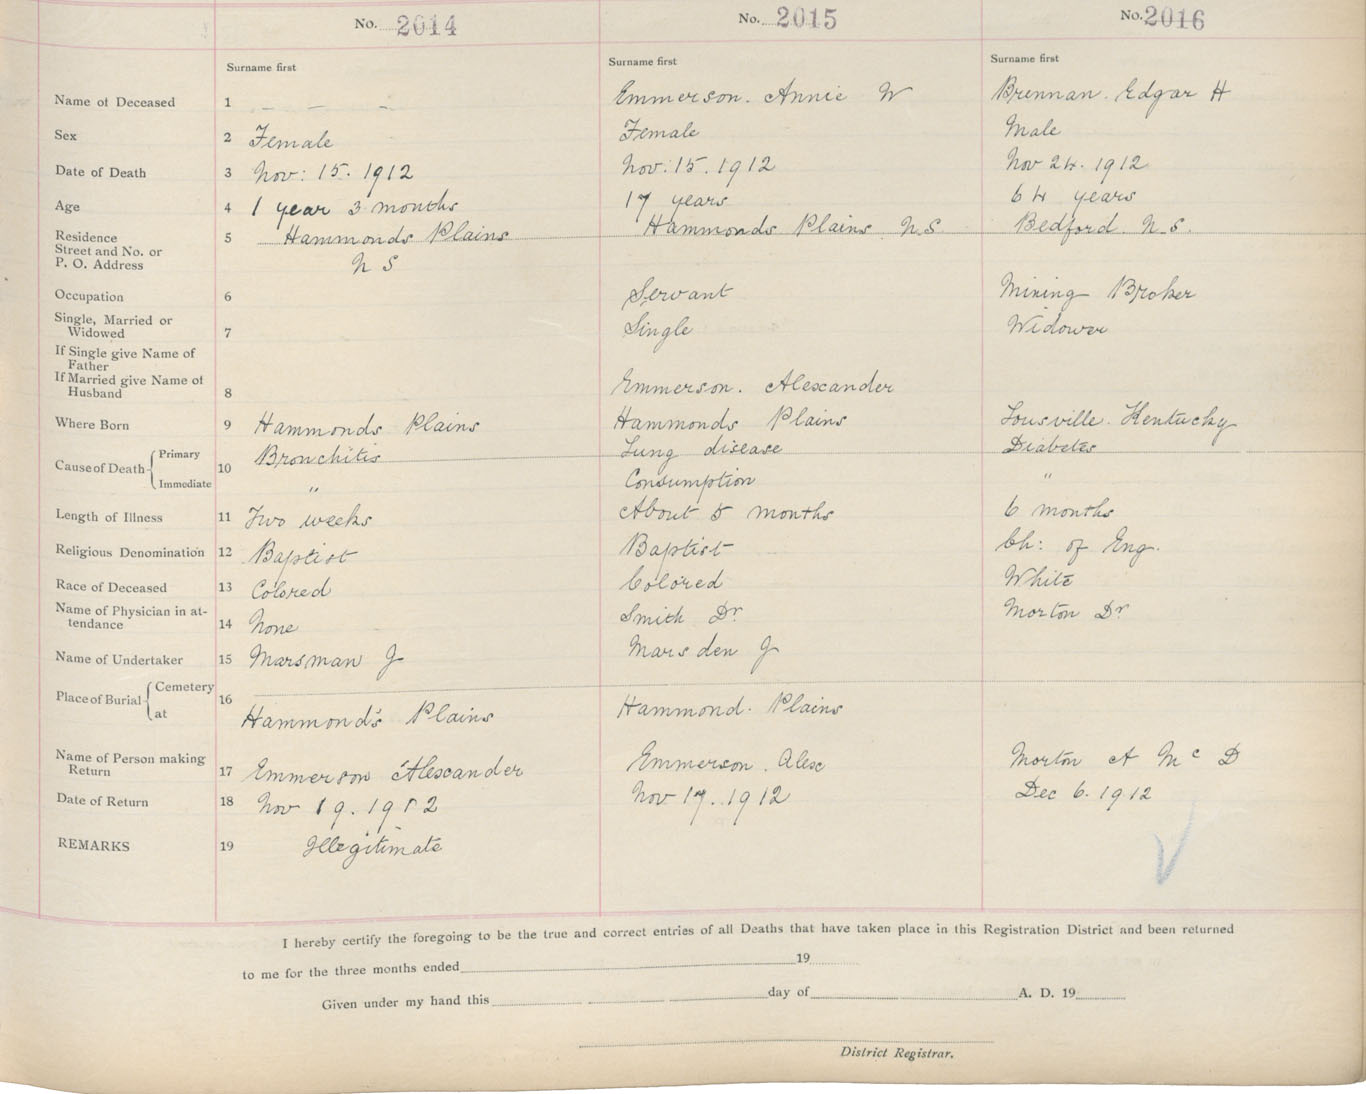 No. 2014 No. 2015 No. 2016
Surname first Surname first Surname first
Name of Deceased 1 — — — Emmerson. Annie W Brennan. Edgar H
Sex 2 Female Female Male
Date of Death 3 Nov: 15. 1912 Nov: 15. 1912 Nov 24. 1912
Age 4 1 year 3 months 17 years 64 years
Residence
Street and No. or
P. O. Address 5 Hammonds Plains Hammonds Plains N.S. Bedford N.S.
N S
Occupation 6 Servant Mining Broker
Single, Married or
Widowed 7 Single Widower
If Single give Name of
Father
If Married give Name of
Husband 8 Emmerson. Alexander
Where Born 9 Hammonds Plains Hammonds Plains Lousville. Kentucky
Cause of Death 10 Primary Bronchitis Lung disease Diabetes
Immediate " Consumption "
Length of Illness 11 Two weeks About 5 months 6 months
Religious Denomination 12 Baptist Baptist Ch: of Eng.
Race of Deceased 13 Colored Colored White
Name of Physician in at-
tendance 14 None Smith Dr Morton Dr
Name of Undertaker 15 Marsman J Marsden J
Place of Burial 16 Cemetery
at Hammond's Plains Hammond. Plains
Name of Person making
Return 17 Emmerson Alexander Emmerson. Alex Morton A Mc D
Date of Return 18 Nov 19. 1912 Nov 17. 1912 Dec 6. 1912
REMARKS 19 Illegitimate
I hereby certify the foregoing to be the true and correct entries of all Deaths that have taken place in this Registration District and been returned
to me for the three months ended 19
Given under my hand this day of A. D. 19
District Registrar.